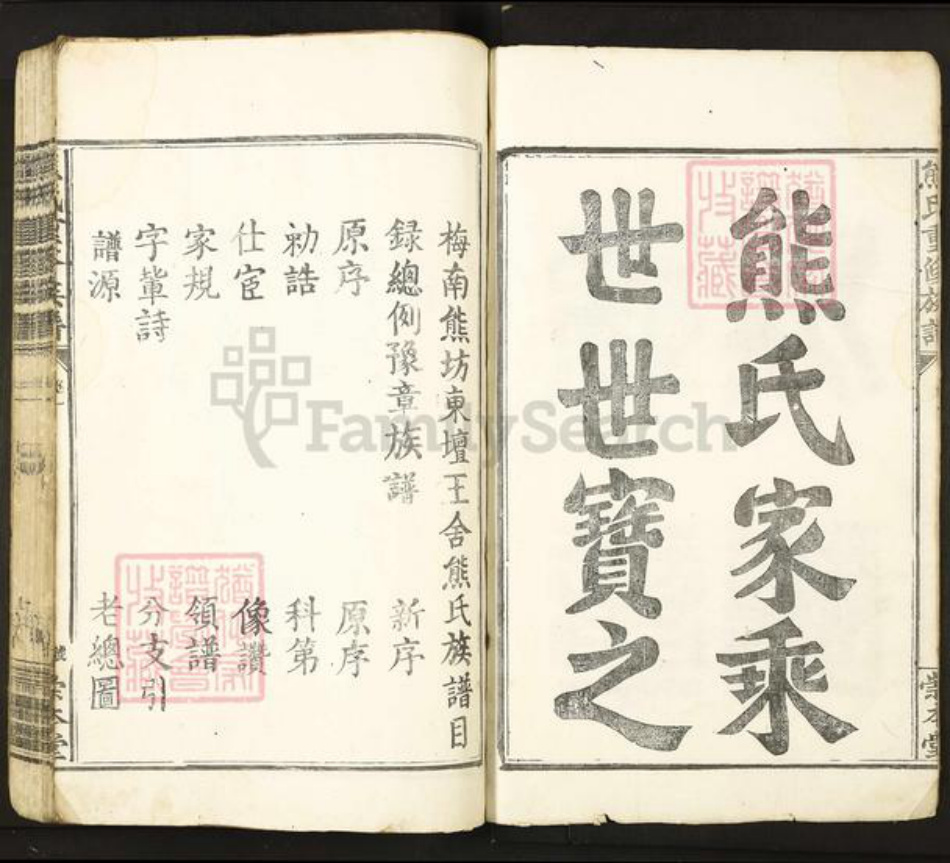 熊氏家乘
世世寶之
熊氏重修族譜
崇本堂
梅南熊坊東壇王舍熊氏族譜目
録總例豫章族譜 新序
原序 原序
勅誥 科第
仕宦 像讚
家規 領譜
字軰詩 分支引
譜源 老總圖
崇本堂
FamilySearch